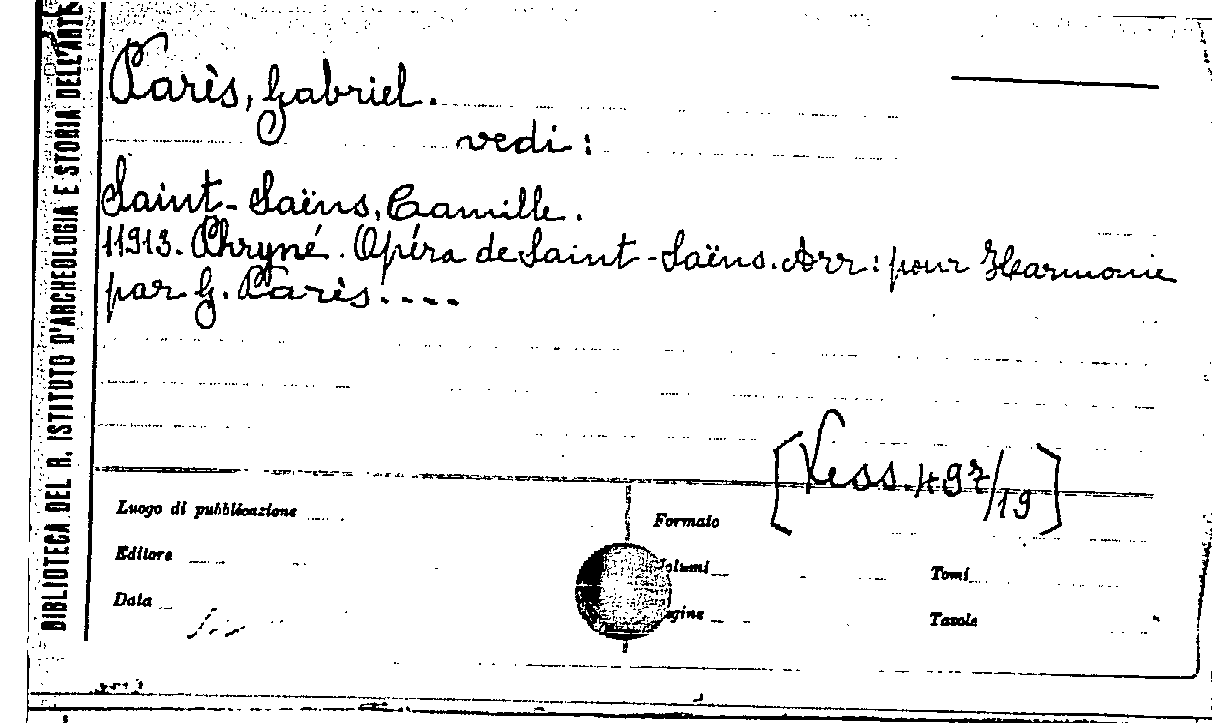 BIBLIOTECA DEL R. ISTITUTO D'ARCHEOLOGIA E STORIA DELL'ARTE
Parès, Gabriel.
vedi:
Saint-Saëns, Camille.
11913. Phryné. Opéra de Saint-Saëns. Arr: pour Harmonie
par G. Parès....
[Vess. 497/19]
Luogo di pubblicazione
Formato
Editore
Volumi
Tomi
Data
Pagine
Tavole